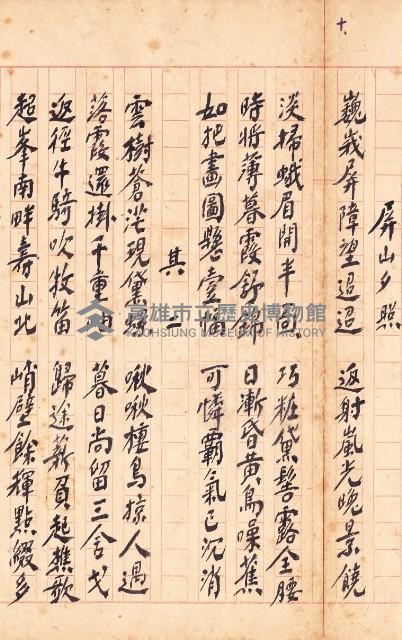 十、
屏山夕照
巍峩屏障望迢迢　返射嵐光晚景饒
淡掃蛾眉開半面　巧粧黛髻露全腰
時將薄暮霞舒錦　日漸昏黃鳥噪蕉
如把畫圖懸壹幅　可憐霸氣已沉消
其二
雲樹蒼茫現黛螺　啾啾棲鳥掠人過
落霞還掛千重　暮日尚留三舍戈
返徑牛騎吹牧笛　歸途薪負起樵歌
超峯南畔壽山北　峭壁餘輝點綴多
高雄市立歷史博物館
KAOHSIUNG MUSEUM OF HISTORY